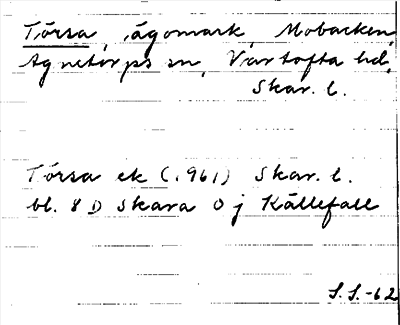 Törsa, ägomark, Mobacken,
Agnetorps sn, Vartofta hd,
Skar. l.
Törsa ek (1961) Skar. l.
bl. 8 D Skara 0 j Källefall
S.S.-62